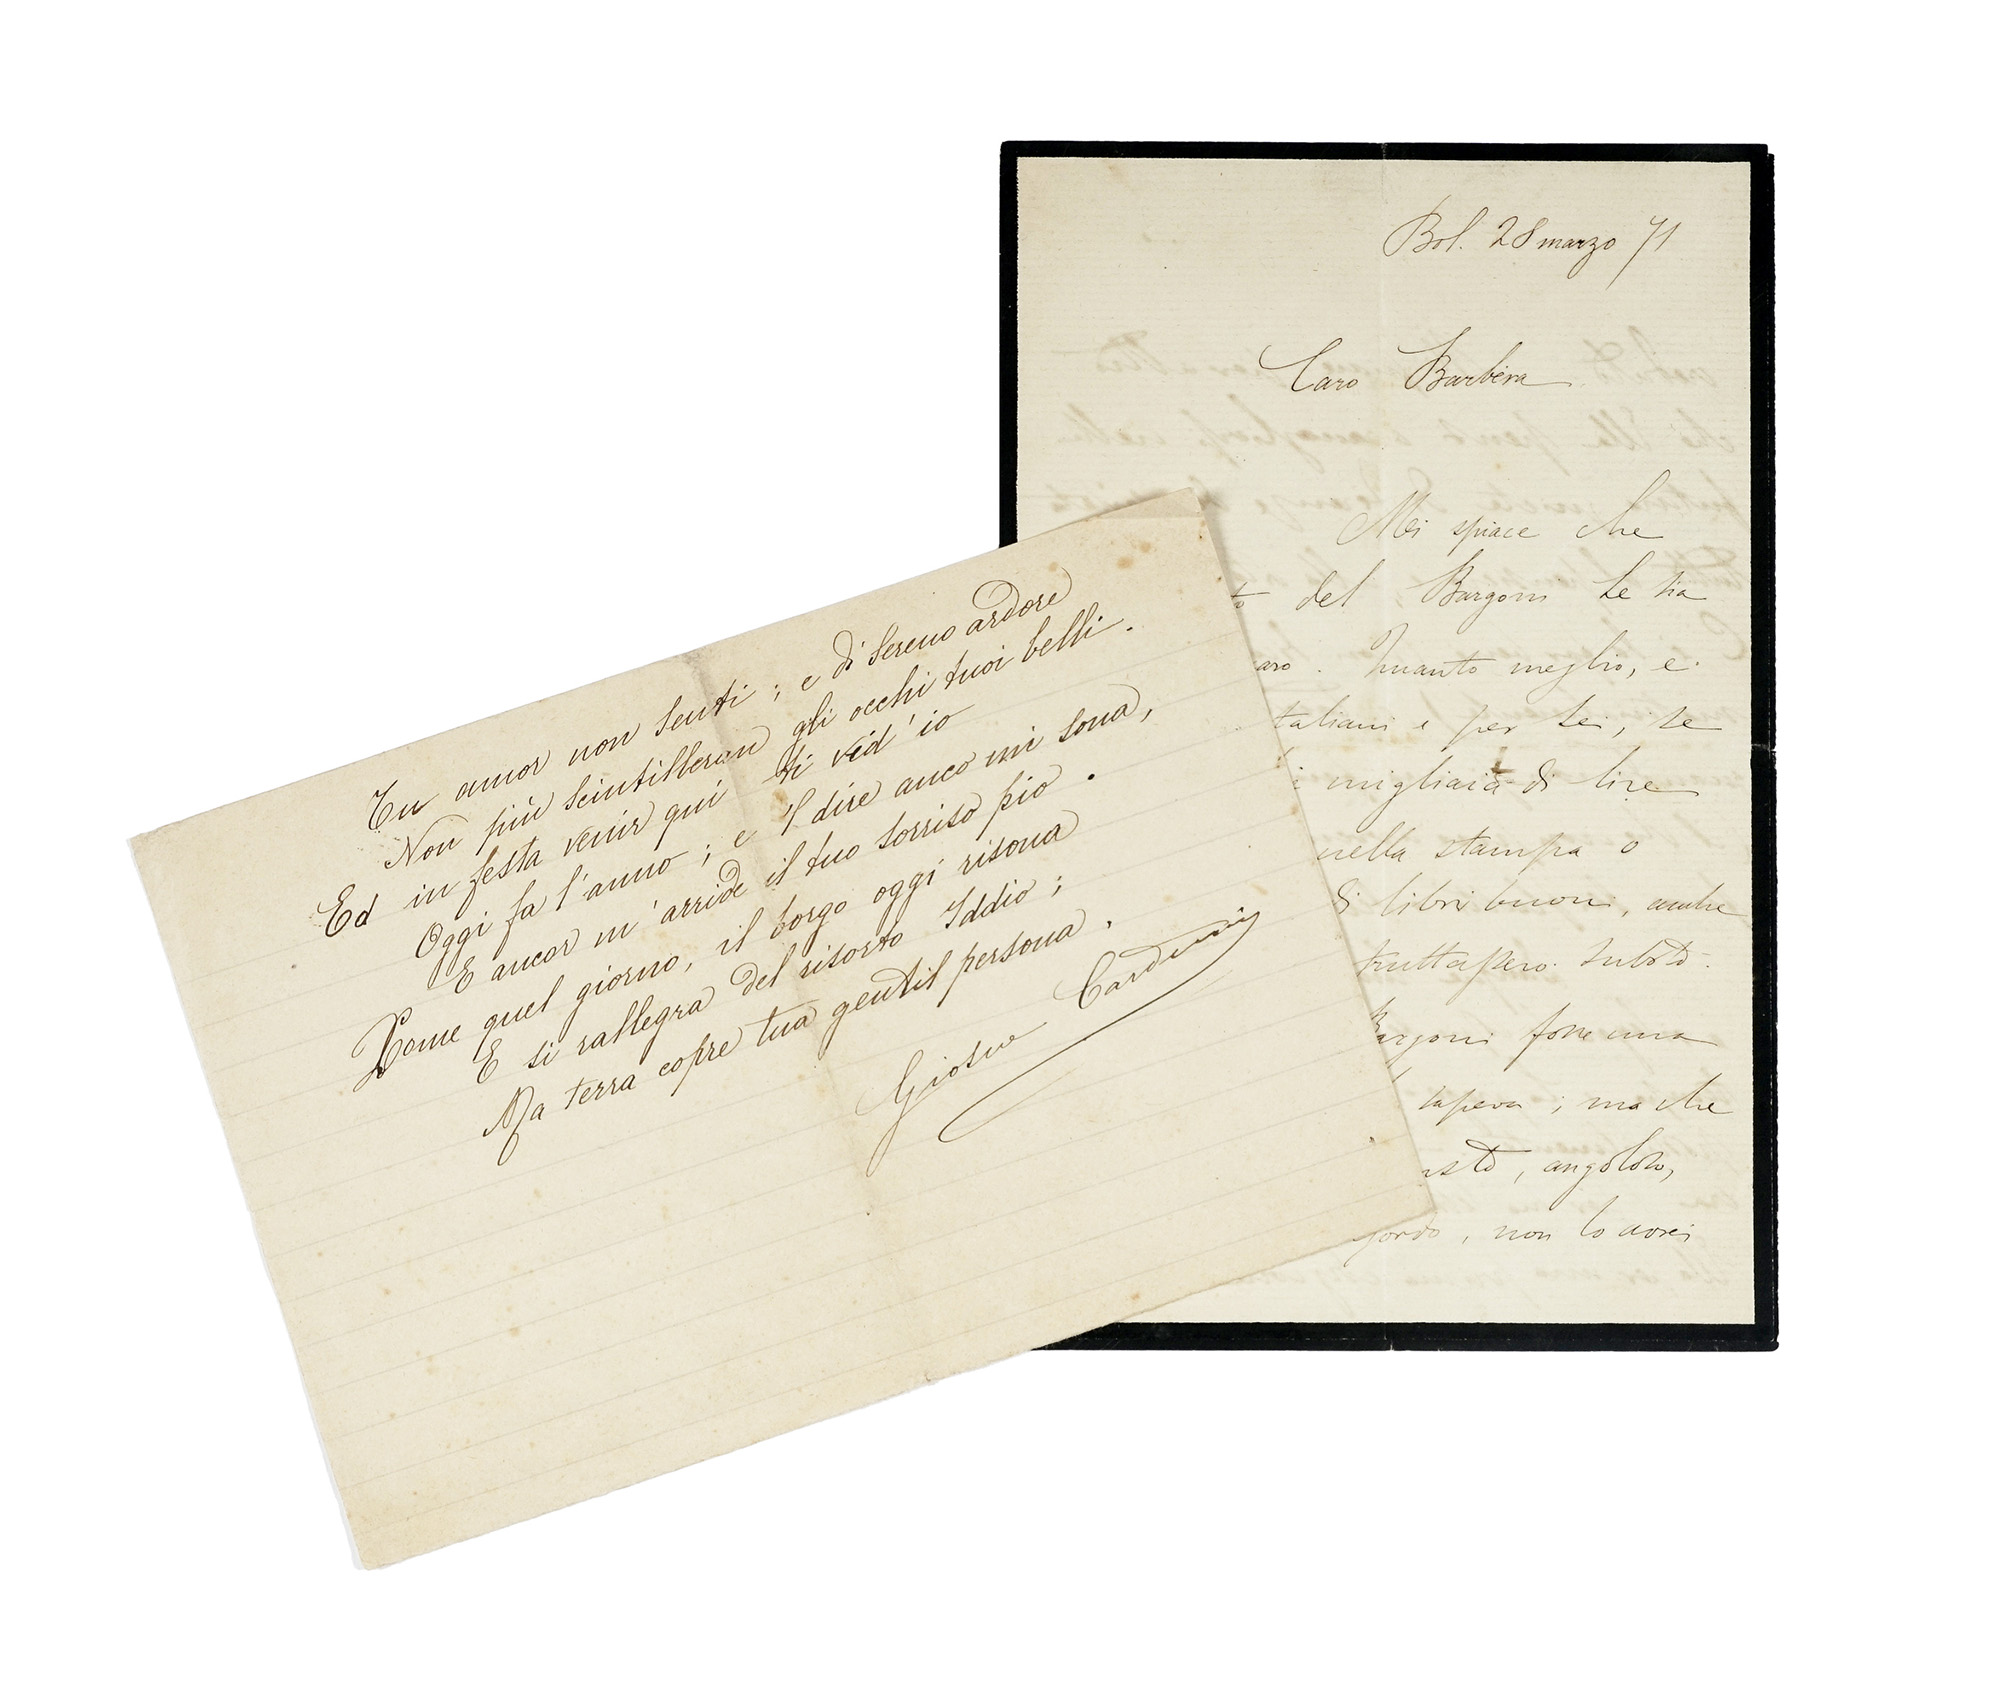 Tu amor non senti; e di sereno ardore
Non più scintilleran gli occhi tuoi belli.
Ed in festa venir qui ti vid' io
Oggi fa l'anno; e 'l dire anco mi sona,
E ancor m'arride il tuo sorriso pio.
Come quel giorno, il borgo oggi risona
E si rallegra del risorto Iddio;
Ma terra copre tua gentil persona.
Giosue Carducci
Bol. 28 marzo 71
Caro Barbèra
Mi spiace che
to del Bargoni Le sia
aro. Quanto meglio, e
taliani e per Lei, se
i migliaia di lire
nella stampa o
di libri buoni, anche
fruttasero subito.
Bargoni fosse una
sapeva; ma che
usto, angoloso,
gordo, non lo avrei